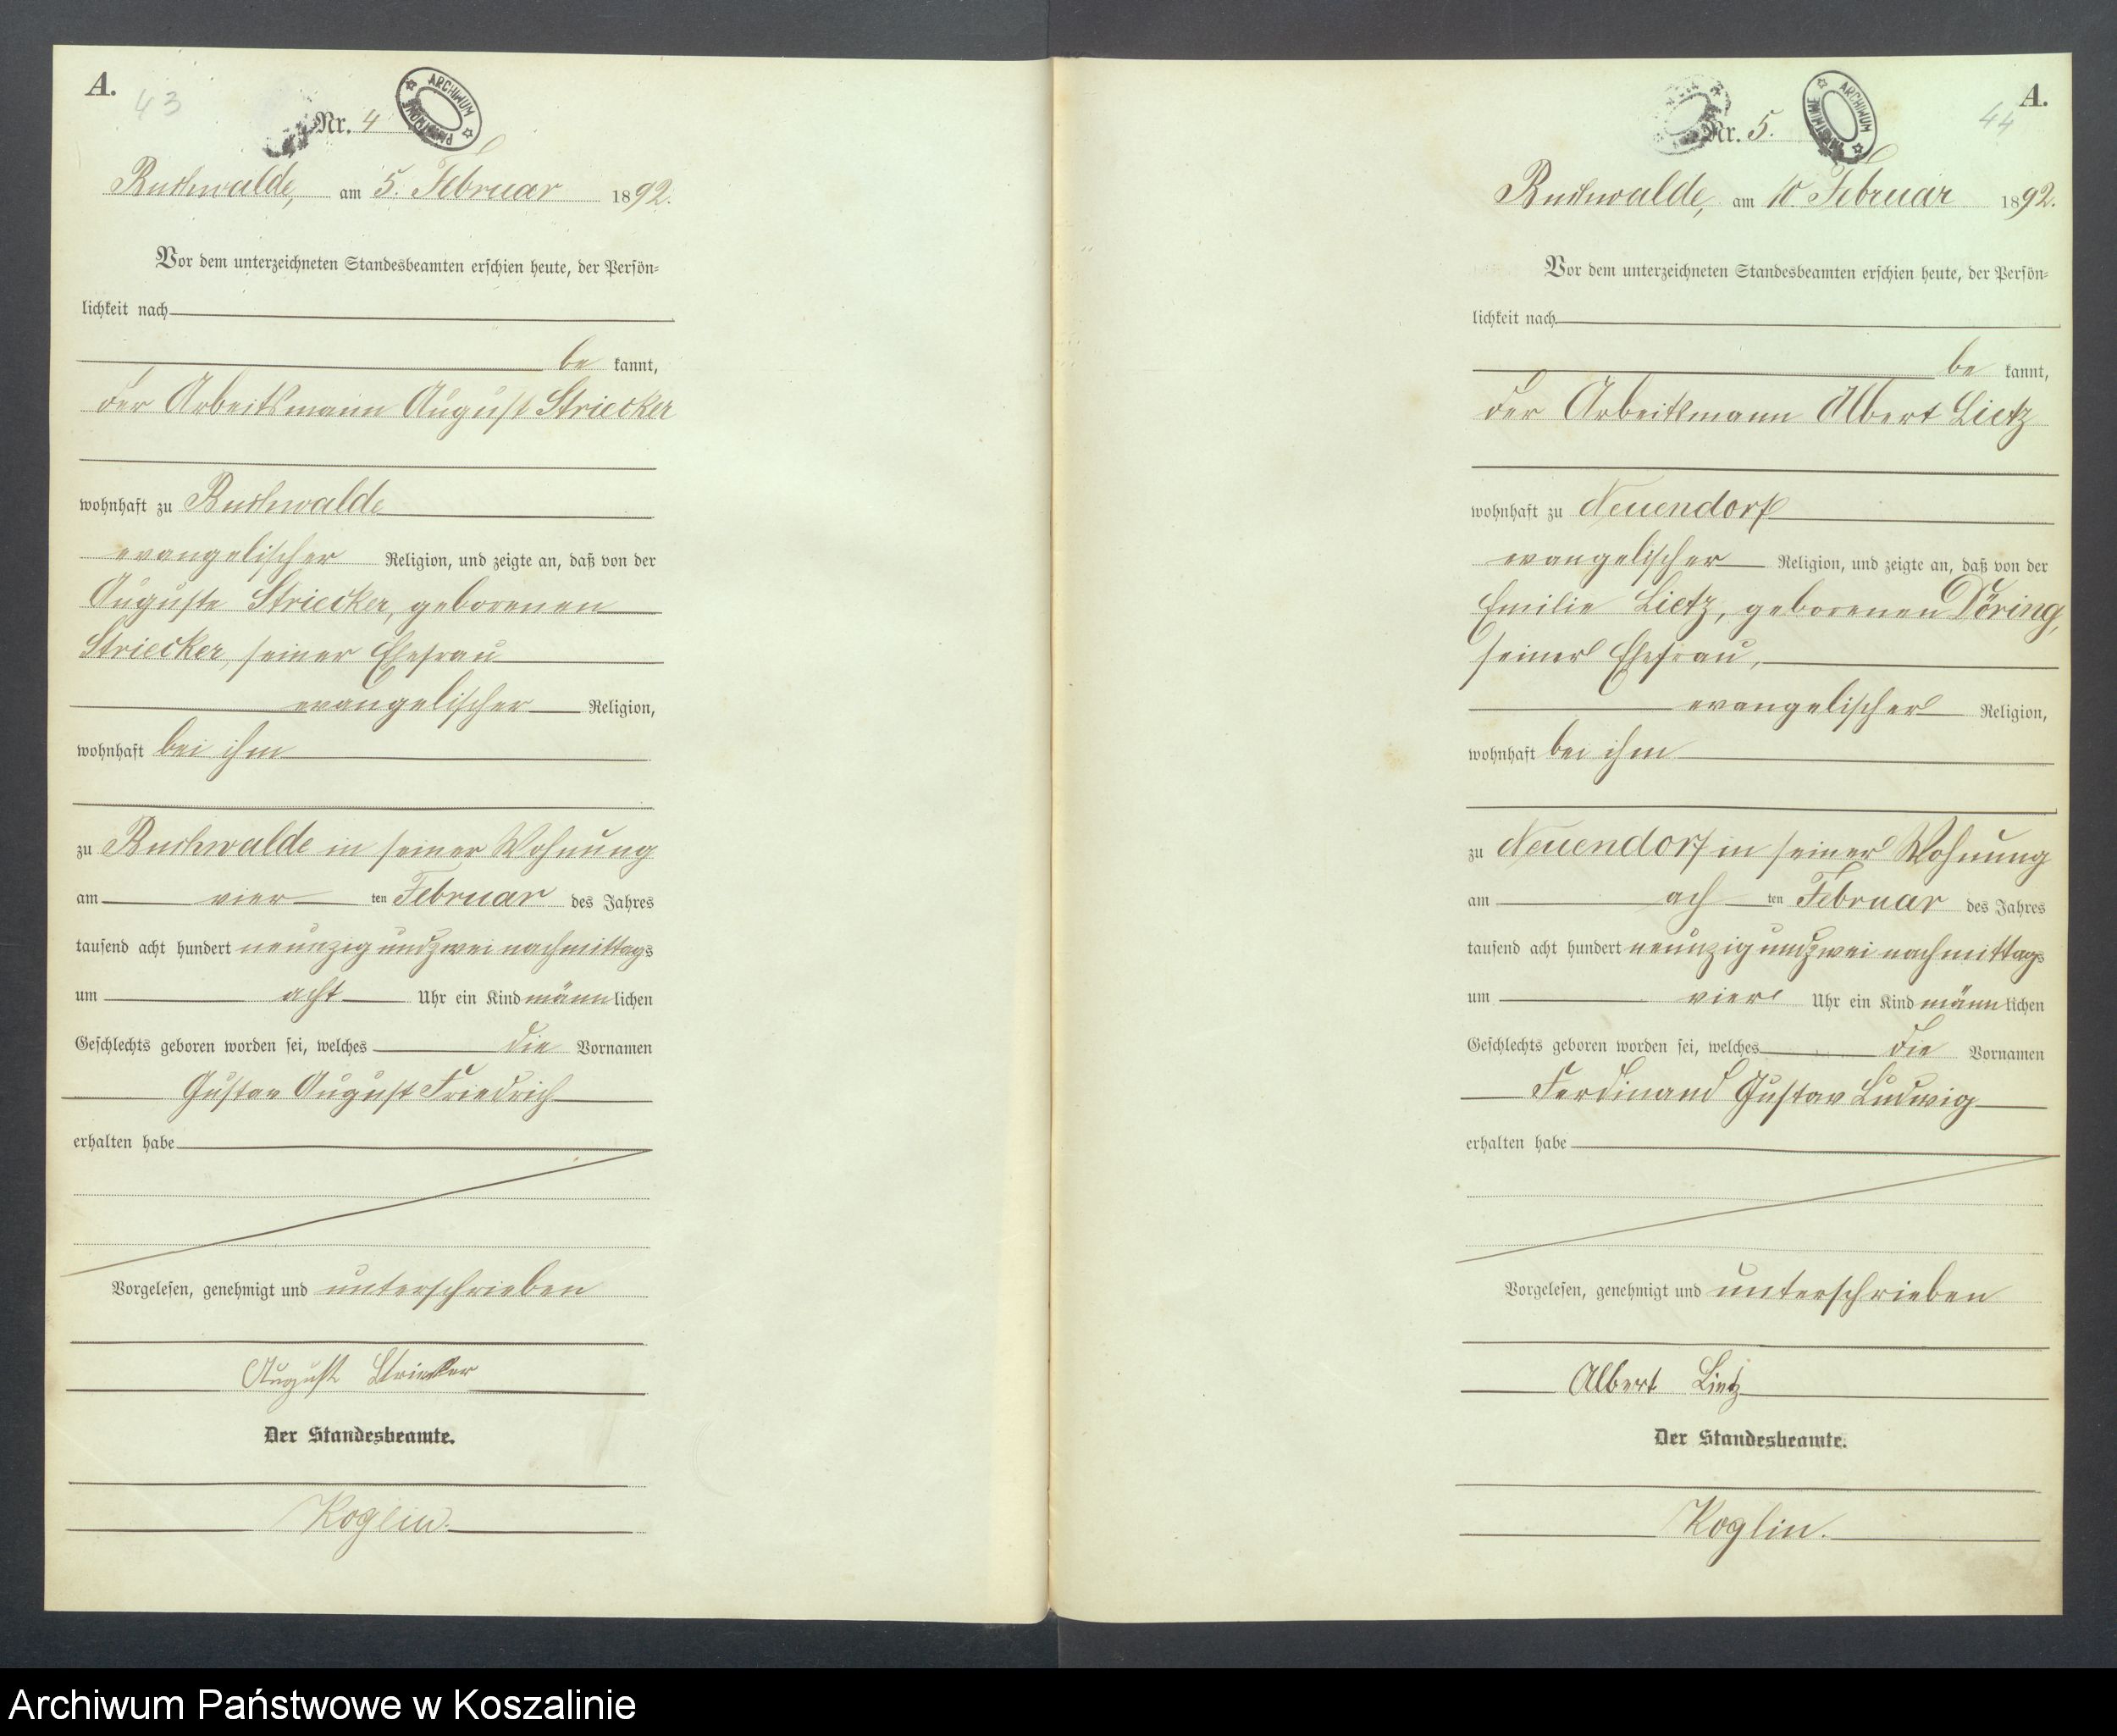 A.
43
Nr. 4
ARCHIWUM PAŃSTWOWE
Buchwalde, am 5. Februar 1892.
Vor dem unterzeichneten Standesbeamten erschien heute, der Persön-
lichkeit nach
be kannt,
der Arbeitsmann August Striecker
wohnhaft zu Buchwalde
evangelischer Religion, und zeigte an, daß von der
Auguste Striecker, geborenen
Striecker, seiner Ehefrau
evangelischer Religion,
wohnhaft bei ihm
zu Buchwalde in seiner Wohnung
am vier ten Februar des Jahres
tausend acht hundert neunzig und zwei nachmittags
um acht Uhr ein Kind männlichen
Geschlechts geboren worden sei, welches die Vornamen
Gustav August Friedrich
erhalten habe
Vorgelesen, genehmigt und unterschrieben
August Striecker
Der Standesbeamte.
Koglin.
A.
44
Nr. 5.
ARCHIWUM PAŃSTWOWE
Buchwalde, am 10. Februar 1892.
Vor dem unterzeichneten Standesbeamten erschien heute, der Persön-
lichkeit nach
be kannt,
der Arbeitsmann Albert Lietz
wohnhaft zu Neuendorf
evangelischer Religion, und zeigte an, daß von der
Emilie Lietz, geborenen Döring,
seiner Ehefrau,
evangelischer Religion,
wohnhaft bei ihm
zu Neuendorf in seiner Wohnung
am ach ten Februar des Jahres
tausend acht hundert neunzig und zwei nachmittags
um vier Uhr ein Kind männlichen
Geschlechts geboren worden sei, welches die Vornamen
Ferdinand Gustav Ludwig
erhalten habe
Vorgelesen, genehmigt und unterschrieben
Albert Lietz
Der Standesbeamte.
Koglin.
Archiwum Państwowe w Koszalinie